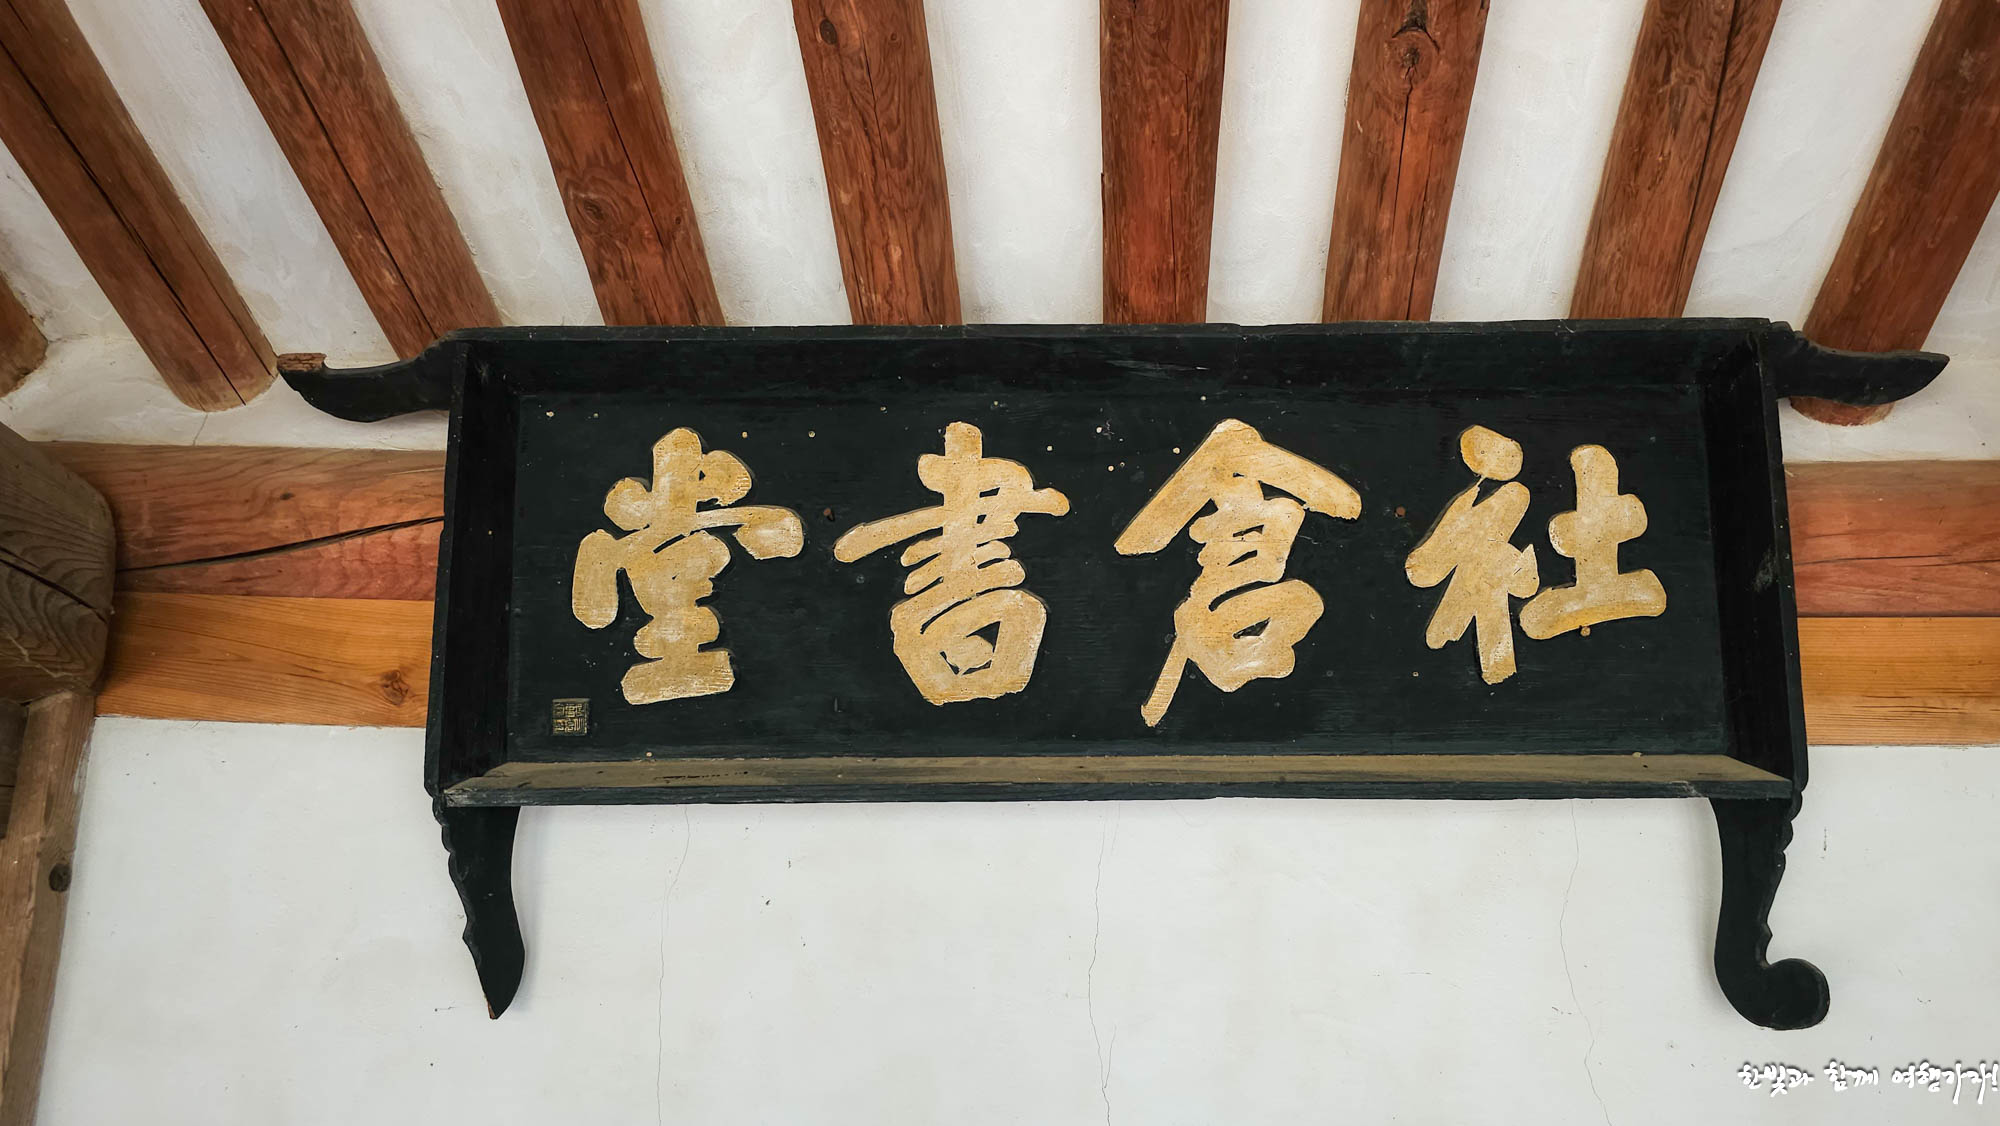 社倉書堂
한빛과 함께 여행가자!